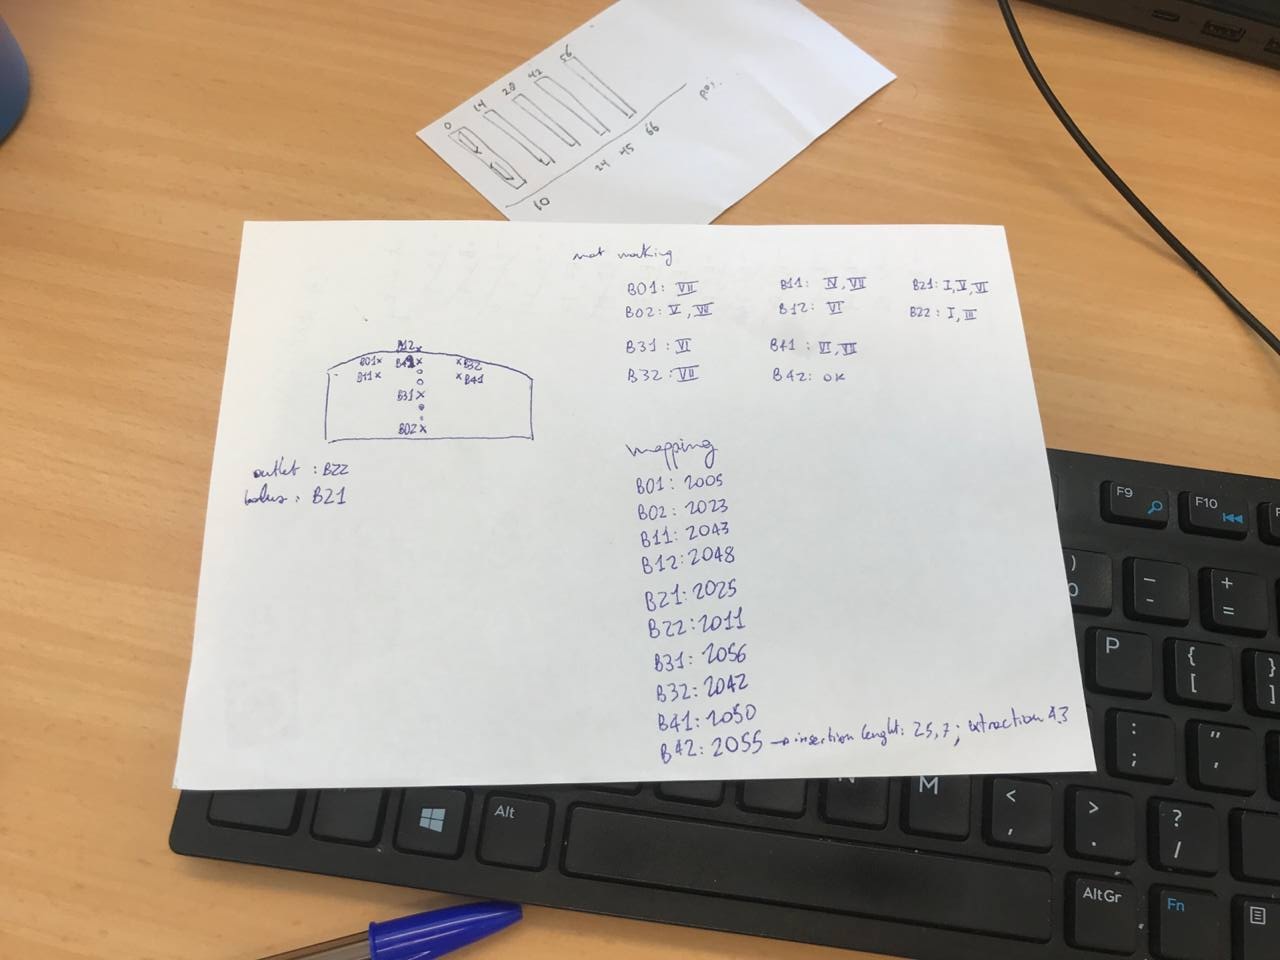 0 14 28 42 56
10 24 45 66
pos.
not working
B01: VII B11: IV, VII B21: I, V, VI
B02: V, VII B12: VI B22: I, III
B31: VI B41: VI, VII
B32: VII B42: OK
B12
B01 B42 B32
B11 B41
B31
B02
outlet: B22
bolus: B21
mapping
B01: 2005
B02: 2023
B11: 2043
B12: 2048
B21: 2025
B22: 2011
B31: 2056
B32: 2042
B41: 2050
B42: 2055 → insertion lenght: 25,7; extraction 43
F9 F10
)
0
_
-
+
=
P
{
[
}
]
:
;
"
,
N M
<
,
>
.
?
/
Alt
AltGr Fn